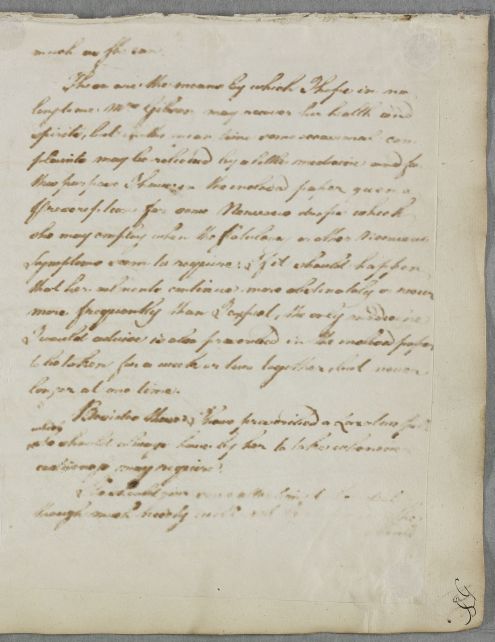 much as she can.
These are the means by which I hope in no
long time Mrs Gibson may recover her health and
spirits, but in the mean time some occasional com-
plaints may be relieved by a little medicine and for
this purpose I have in the inclosed paper given a
Prescription for some Nervous drops which
she may employ when the Flatulence or other Nervous
Symptoms seem to require. If it should happen
that her ailments continue more obstinately or recur
more frequently than I expect, the only medicine
I would advise is also prescribed in the inclosed paper
to be taken for a week or two together but never
longer at one time.
Besides these I have prescribed a Laxative
which she should always have by her to take whenever
costiveness may require.
though much